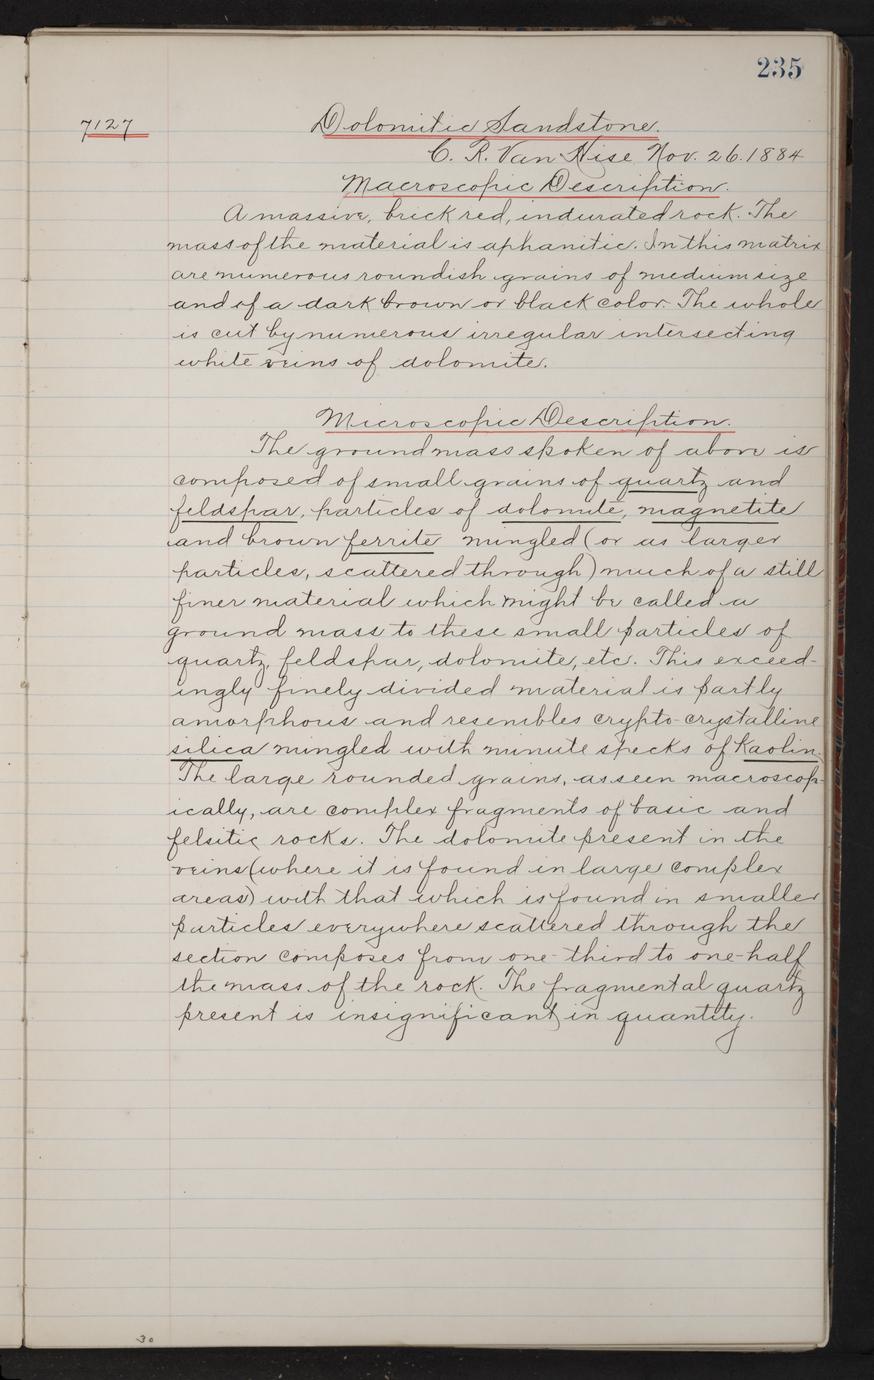 235
7127
Dolomitic Sandstone.
C. R. Van Hise Nov. 26. 1884
Macroscopic Description.
A massive, brick red, indurated rock. The
mass of the material is aphanitic. In this matrix
are numerous roundish grains of medium size
and of a dark brown or black color. The whole
is cut by numerous irregular intersecting
white veins of dolomite.
Microscopic Description.
The ground mass spoken of above is
composed of small grains of quartz and
feldspar, particles of dolomite, magnetite
and brown ferrite mingled (or as larger
particles, scattered through) much of a still
finer material which might be called a
ground mass to these small particles of
quartz, feldspar, dolomite, etc. This exceed-
ingly finely divided material is partly
amorphous and resembles crypto-crystalline
silica mingled with minute specks of Kaolin.
The large rounded grains, as seen macroscop-
ically, are complex fragments of basic and
felsitic rocks. The dolomite present in the
veins (where it is found in large complex
areas) with that which is found in smaller
particles everywhere scattered through the
section composes from one-third to one-half
the mass of the rock. The fragmental quartz
present is insignificant in quantity.
30